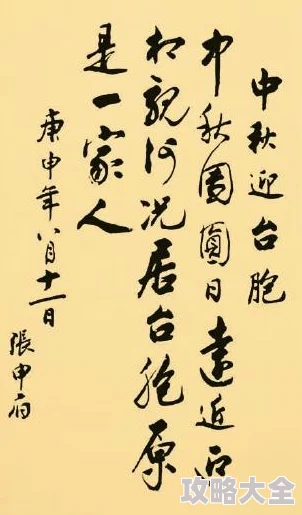 中秋迎台胞
中秋團圓日遠近
相親何况居台胞原
是一家人
庚申年八月十一日
張申府
攻略大全